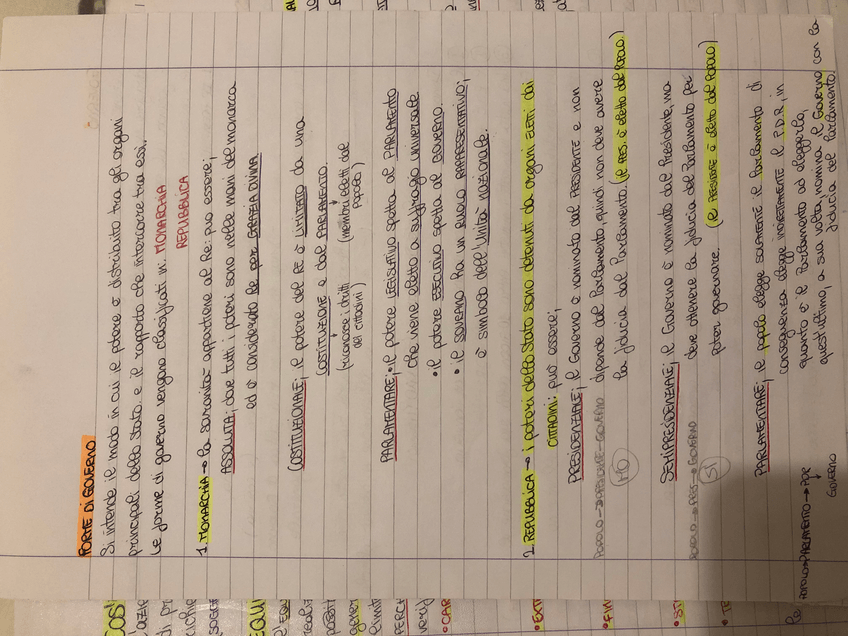 FORME DI GOVERNO
Si intende il modo in cui il potere è distribuito tra gli organi
principali dello Stato e il rapporto che intercorre tra essi.
Le forme di governo vengono classificati in: MONARCHIA
REPUBBLICA
1. MONARCHIA → la sovranità appartiene al Re: può essere;
ASSOLUTA; dove tutti i poteri sono nelle mani del monarca
ed è considerato Re per GRAZIA DIVINA
COSTITUZIONALE; il potere del RE è LIMITATO da una
COSTITUZIONE e dal PARLAMENTO.
(riconosce i diritti (membri eletti dal
dei cittadini) popolo)
PARLAMENTARE; • il potere LEGISLATIVO spetta al PARLAMENTO
che viene eletto a suffragio universale
• il potere ESECUTIVO spetta al GOVERNO.
• il SOVRANO ha un ruolo RAPPRESENTATIVO;
è simbolo dell'Unità nazionale.
2. REPUBBLICA → i poteri dello Stato sono detenuti da organi ELETTI dai
CITTADINI: può essere;
PRESIDENZIALE; il Governo è nominato dal PRESIDENTE e non
POPOLO → PRESIDENTE → GOVERNO dipende dal Parlamento, quindi non deve avere
NO la fiducia dal Parlamento. (il PRES. è eletto dal POPOLO)
SEMIPRESIDENZIALE; il Governo è nominato dal Presidente, ma
POPOLO → PRES → GOVERNO deve ottenere la fiducia del Parlamento per
SI poter governare. (il PRESIDENTE è eletto dal POPOLO)
PARLAMENTARE; il popolo elegge SOLAMENTE il Parlamento di
conseguenza elegge INDIRETTAMENTE il P.D.R, in
quanto è il Parlamento ad eleggerlo,
POPOLO → PARLAMENTO → PDR quest'ultimo, a sua volta, nomina il Governo con la
GOVERNO fiducia del Parlamento.